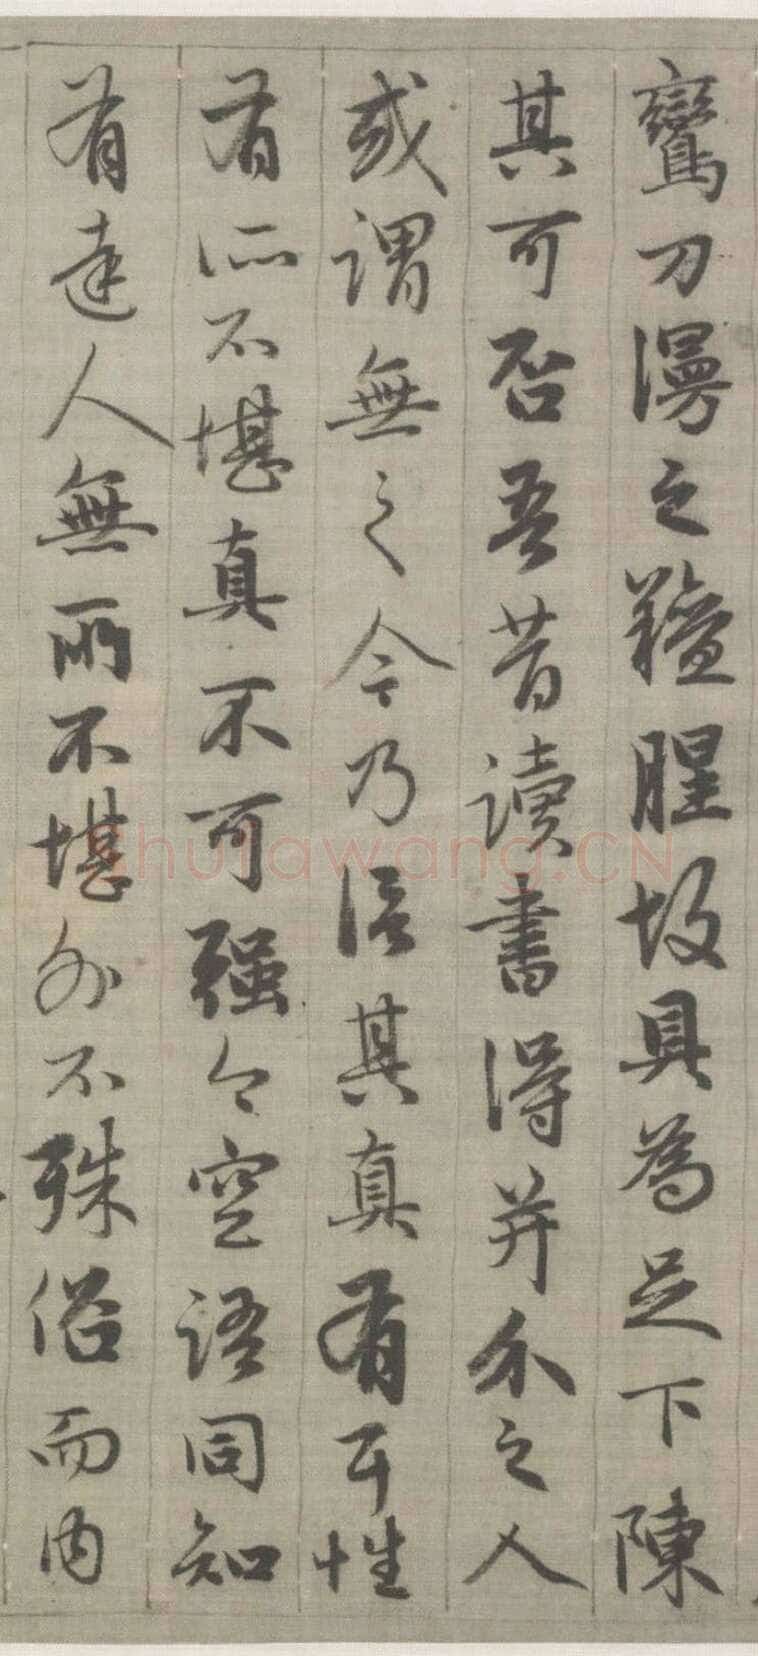 鸞刀漫之羶腥故具為足下陳
其可否吾昔讀書得并介之人
或謂無之今乃信其真有耳性
有所不堪真不可强今空語同知
有達人無所不堪外不殊俗而內
shufawang.CN